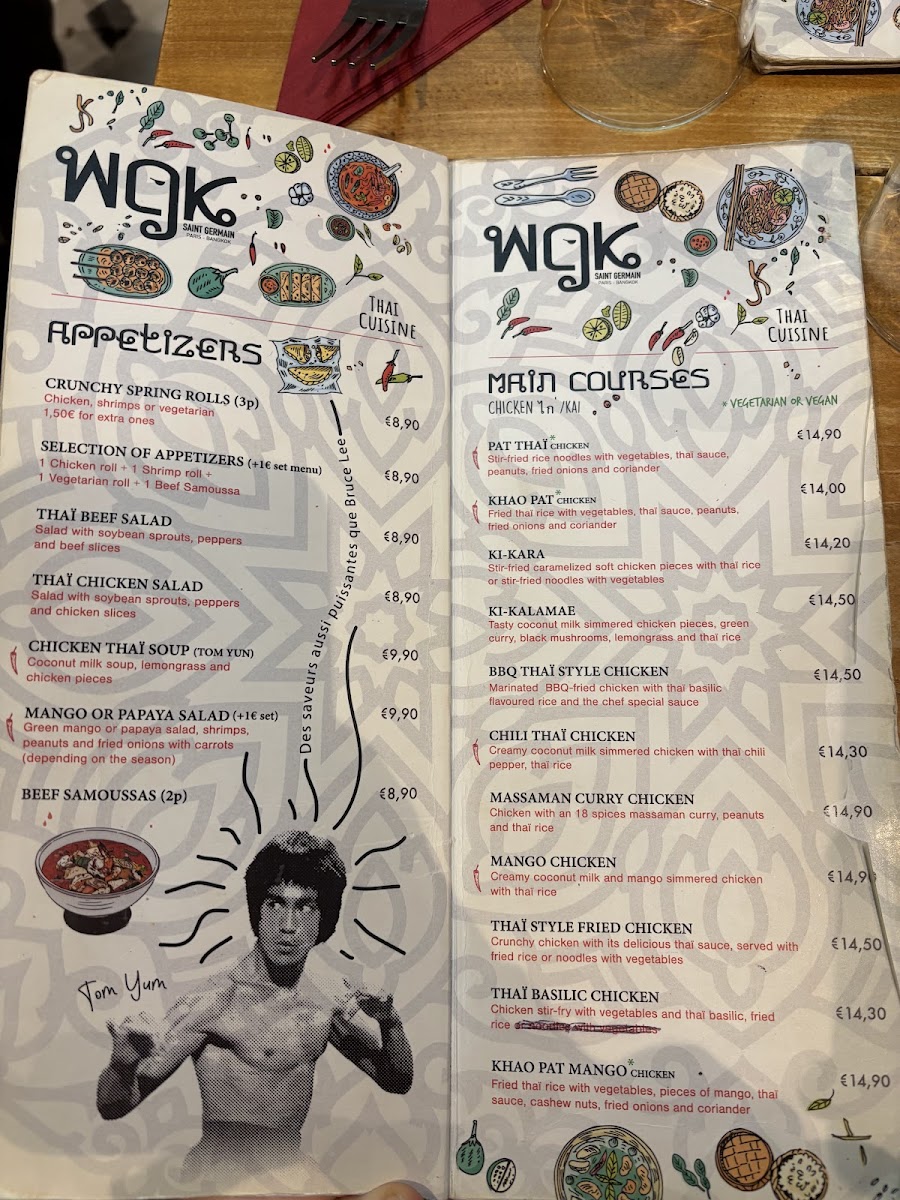 WOK
SAINT GERMAIN
PARIS - BANGKOK
THAI
CUISINE
APPETIZERS
CRUNCHY SPRING ROLLS (3p)
Chicken, shrimps or vegetarian
1,50€ for extra ones
€8,90
SELECTION OF APPETIZERS (+1€ set menu)
1 Chicken roll + 1 Shrimp roll +
1 Vegetarian roll + 1 Beef Samoussa
€8,90
THAÏ BEEF SALAD
Salad with soybean sprouts, peppers
and beef slices
€8,90
THAÏ CHICKEN SALAD
Salad with soybean sprouts, peppers
and chicken slices
€8,90
CHICKEN THAÏ SOUP (TOM YUN)
Coconut milk soup, lemongrass and
chicken pieces
€9,90
MANGO OR PAPAYA SALAD (+1€ set)
Green mango or papaya salad, shrimps,
peanuts and fried onions with carrots
(depending on the season)
€9,90
BEEF SAMOUSSAS (2p)
€8,90
Des saveurs aussi puissantes que Bruce Lee
Tom Yum
WOK
SAINT GERMAIN
PARIS - BANGKOK
THAI
CUISINE
MAIN COURSES
CHICKEN ไก่ /KAI
* VEGETARIAN OR VEGAN
PAT THAÏ * CHICKEN
Stir-fried rice noodles with vegetables, thaï sauce,
peanuts, fried onions and coriander
€14,90
KHAO PAT * CHICKEN
Fried thaï rice with vegetables, thaï sauce, peanuts,
fried onions and coriander
€14,00
KI-KARA
Stir-fried caramelized soft chicken pieces with thaï rice
or stir-fried noodles with vegetables
€14,20
KI-KALAMAE
Tasty coconut milk simmered chicken pieces, green
curry, black mushrooms, lemongrass and thaï rice
€14,50
BBQ THAÏ STYLE CHICKEN
Marinated BBQ-fried chicken with thaï basilic
flavoured rice and the chef special sauce
€14,50
CHILI THAÏ CHICKEN
Creamy coconut milk simmered chicken with thaï chili
pepper, thaï rice
€14,30
MASSAMAN CURRY CHICKEN
Chicken with an 18 spices massaman curry, peanuts
and thaï rice
€14,90
MANGO CHICKEN
Creamy coconut milk and mango simmered chicken
with thaï rice
€14,90
THAÏ STYLE FRIED CHICKEN
Crunchy chicken with its delicious thaï sauce, served with
fried rice or noodles with vegetables
€14,50
THAÏ BASILIC CHICKEN
Chicken stir-fry with vegetables and thaï basilic, fried
rice or noodles with vegetables
€14,30
KHAO PAT MANGO * CHICKEN
Fried thaï rice with vegetables, pieces of mango, thaï
sauce, cashew nuts, fried onions and coriander
€14,90